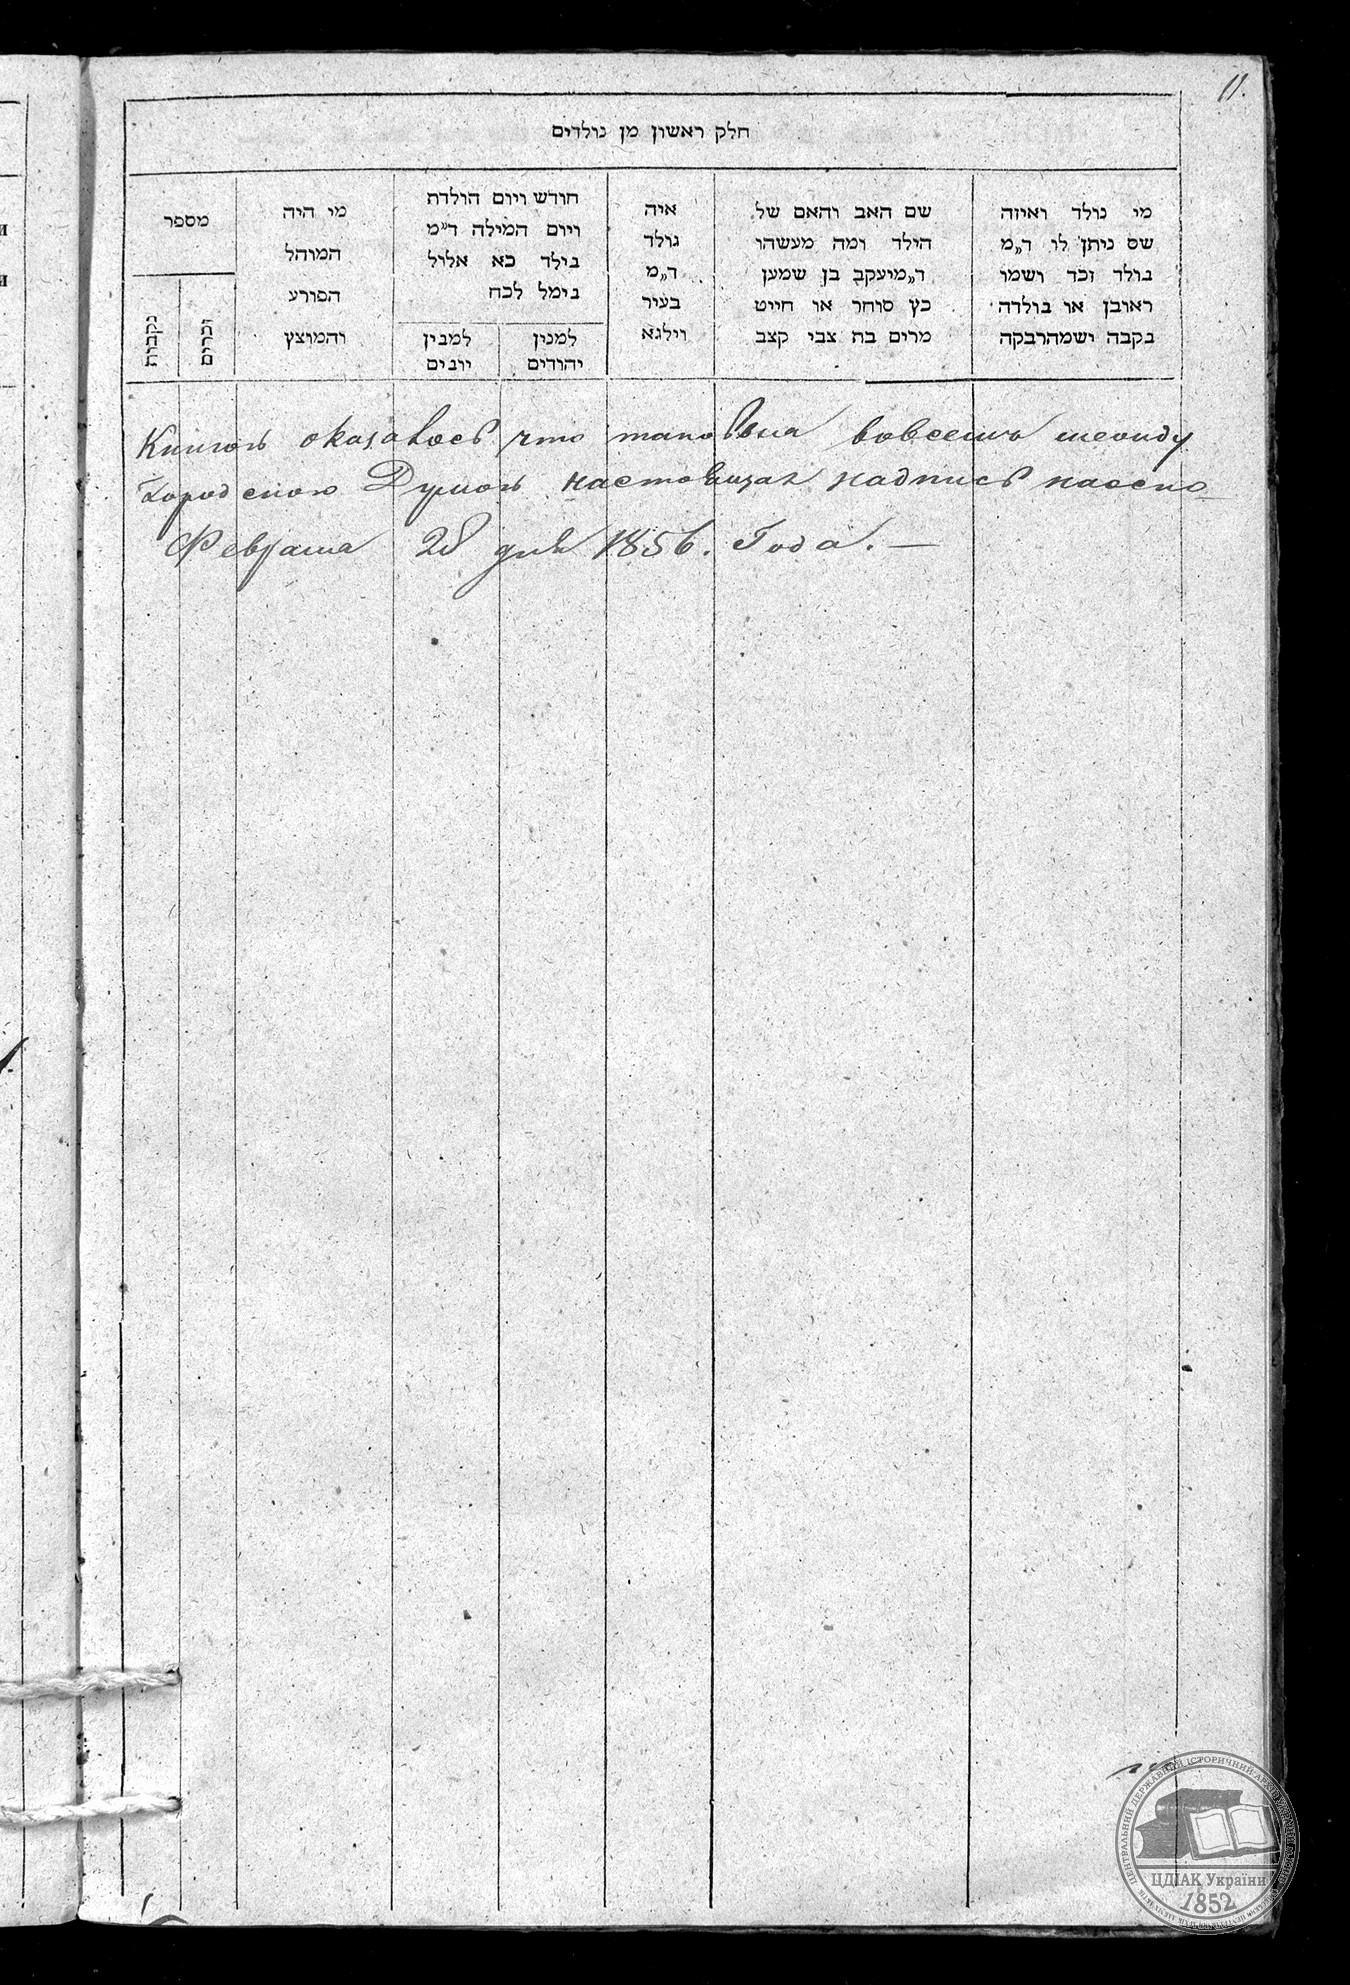 11.
חלק ראשון מן נולדים
מי נולד ואיזה
שם ניתן לו ד״מ
בולד זכר ושמו
ראובן או בולדה
נקבה ושמהרבקה
שם האב והאם של
הילד ומה מעשהו
ד״מיעקב בן שמען
כץ סוחר או חייט
מרים בת צבי קצב
איה
נולד
ד״מ
בעיר
ווילנא
חודש ויום הולדת
ויום המילה ד״מ
בילד כא אלול
נימל לכח
למנין
יהודים
למנין
יונים
מי היה
המוהל
הפורע
והמוצץ
מספר
זכרים
נקבות
Книгѣ оказалось что таковыя вовсемъ
Городскою Думою настоящая надпись
Февраля 28 дня 1856. Года. —
ЦЕНТРАЛЬНИЙ ДЕРЖАВНИЙ ІСТОРИЧНИЙ АРХІВ УКРАЇНИ
ЦДІАК України
1852